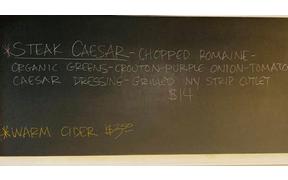 *STEAK CAESAR-CHOPPED ROMAINE-
ORGANIC GREENS-CROUTON-PURPLE ONION-TOMATO
CAESAR DRESSING-GRILLED NY STRIP CUTLET
$14
*WARM CIDER $3.50